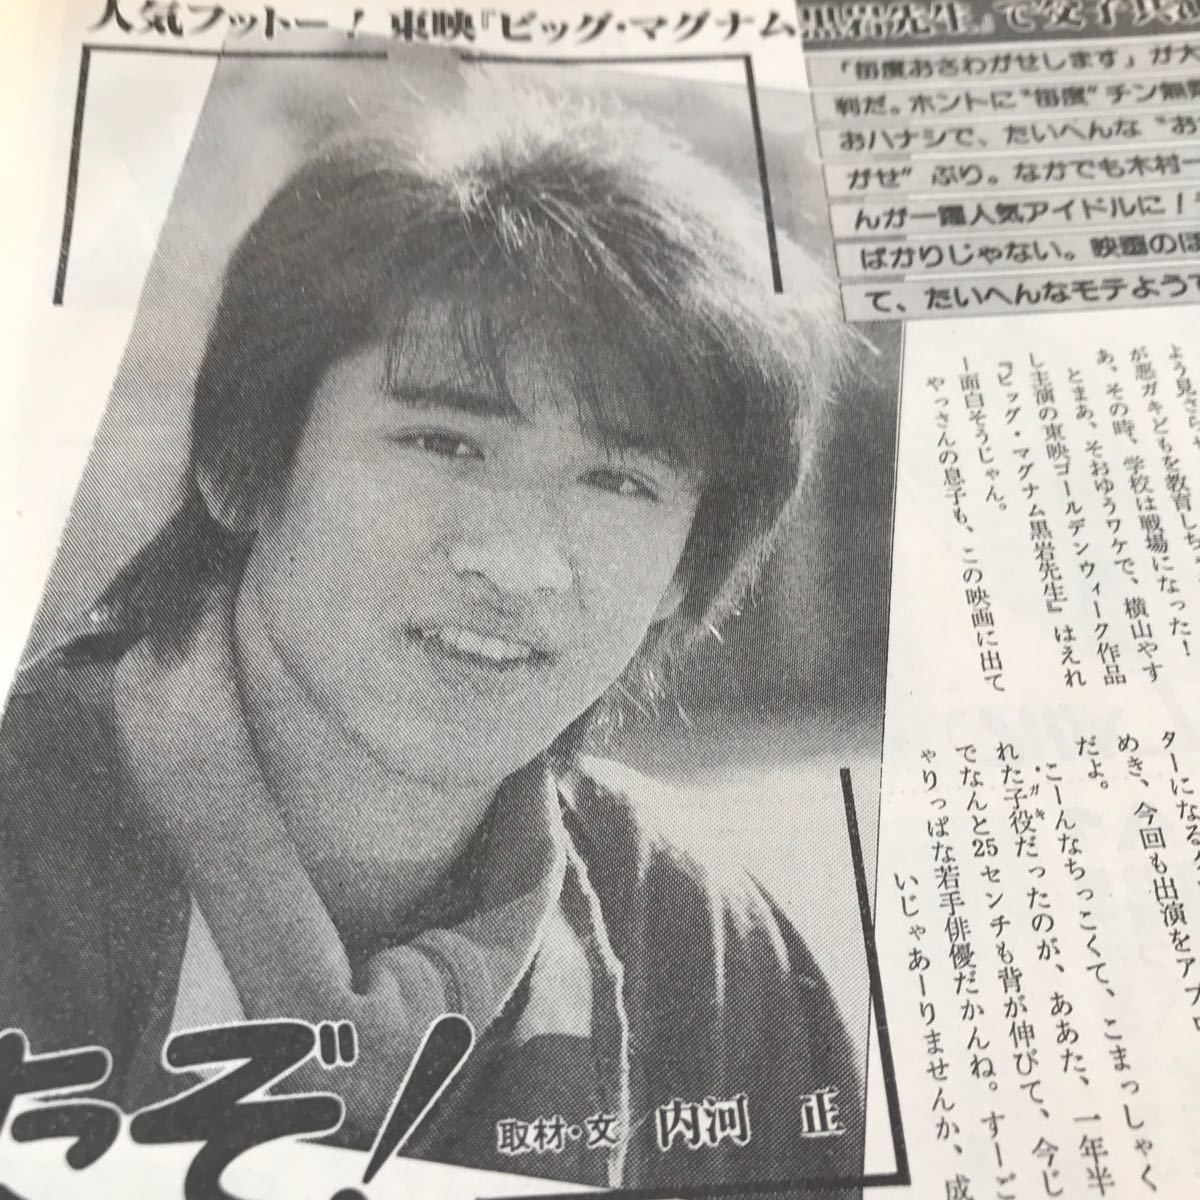 人気フットー！東映『ビッグ・マグナム黒岩先生』で
「毎度おさわがせします」が大
判だ。ホントに“毎度”チン無
おハナシで、たいへんな“お
がせ”ぶり。なかでも木村一
んが一躍人気アイドルに！
ばかりじゃない。映画のほ
て、たいへんなモテようで
が悪ガキどもを教育しち
あ、その時、学校は戦場になった！
とまぁ、そおゆうワケで、横山やす
し主演の東映ゴールデンウィーク作品
『ビッグ・マグナム黒岩先生』はえれ
ー面白そうじゃん。
やっさんの息子も、この映画に出て
ターになる
めき、今回も出演をア
だよ。
こーんなちっこくて、こまっしゃく
れた子役だったのが、ああた、一年半
ガキ
でなんと25センチも背が伸びて、今じ
ゃりっぱな若手俳優だかんね。すーご
いじゃあーりませんか、成
ぞ！
取材・文 内河 正